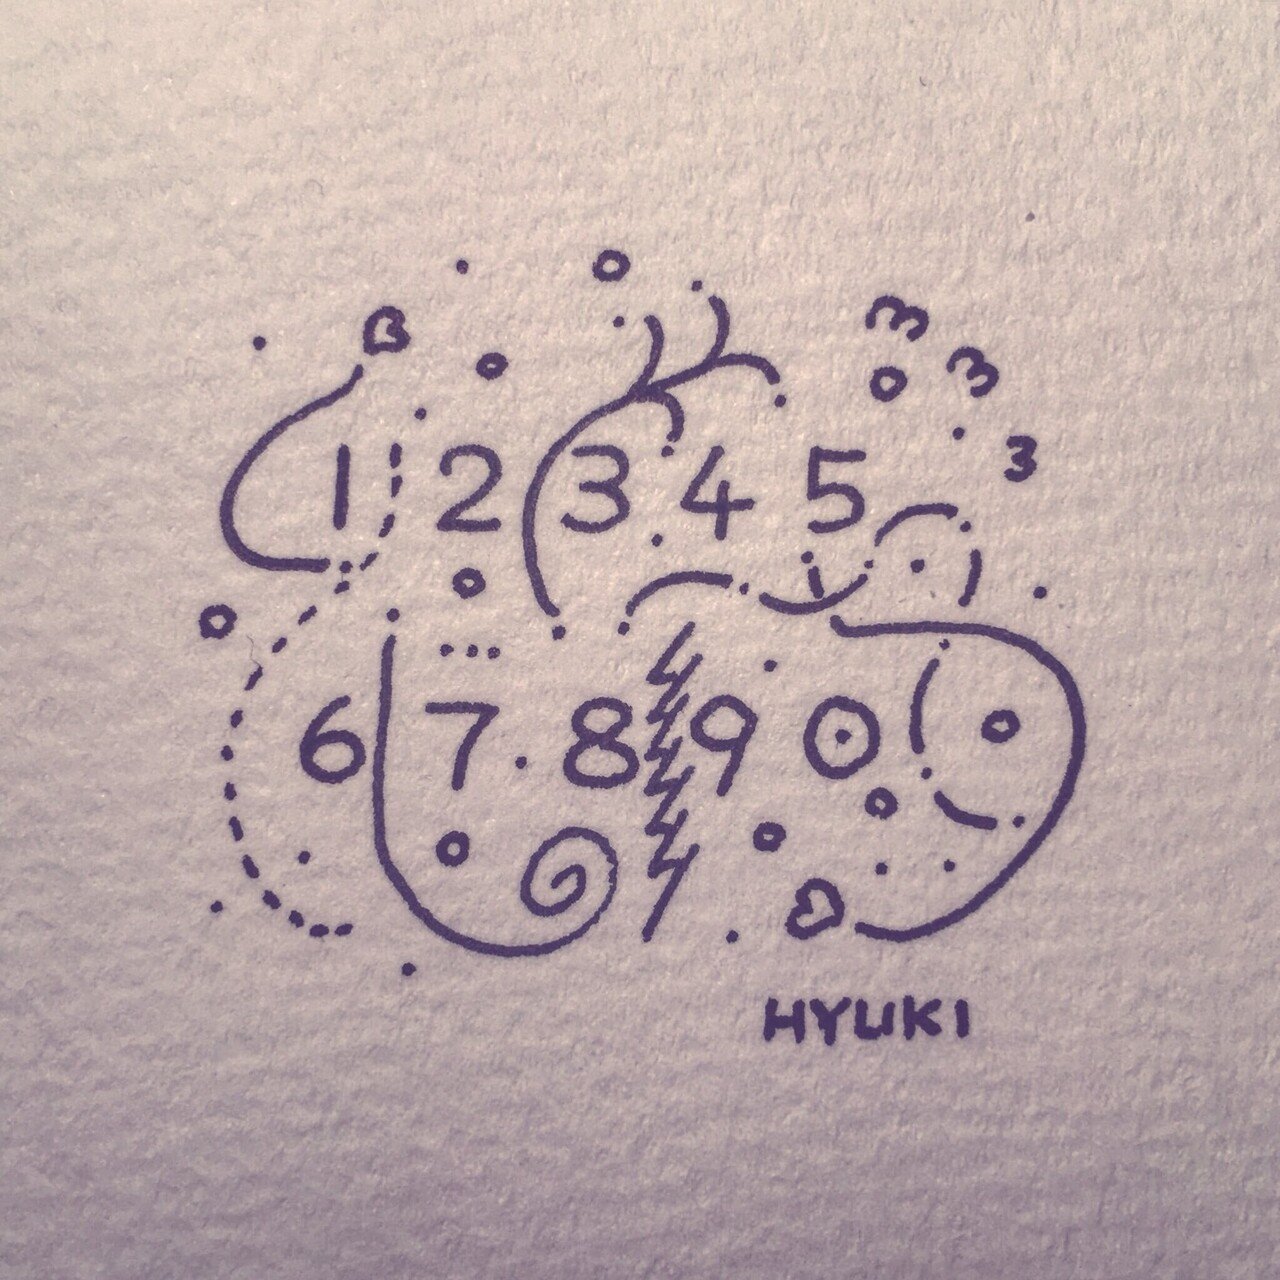 1 2 3 4 5
6 7 8 9 0
HYUKI